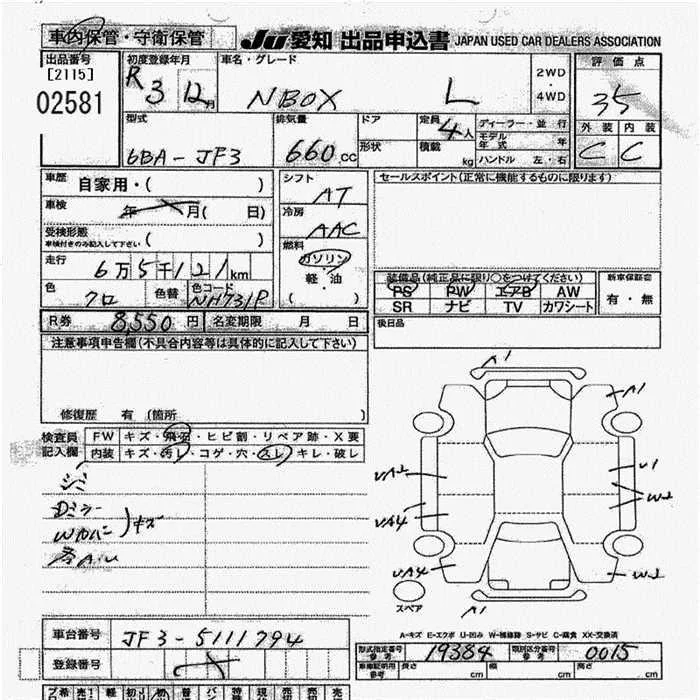 車内保管・守衛保管
JU 愛知 出品申込書 JAPAN USED CAR DEALERS ASSOCIATION
出品番号
[2115]
02581
初度登録年月
R3 12月
車名・グレード
NBOX L
2WD
・
4WD
評価点
35
外装 内装
C C
型式
6BA-JF3
排気量
660 cc
ドア
形状
定員
4人
積載
kg
ディーラー・並行
モデル年式 年
ハンドル 左・右
車歴
自家用・( )
車検
年 月( 日)
受検形態
車検付きのみ記入して下さい ( )
走行
6万5千121km
色
クロ
色替
色コード
NH731P
シフト
AT
冷房
AAC
燃料
ガソリン
軽・油
( )
セールスポイント(正常に機能するものに限ります)
装備品(純正品に限り○をつけてください)
PS PW エアB AW
SR ナビ TV カワシート
新車保証書
有・無
R券 8,550円
名変期限 月 日
後日品
注意事項申告欄(不具合内容等は具体的に記入して下さい)
修復歴 有 (箇所 )
検査員
記入欄
FW キズ・飛石・ヒビ割・リペア跡・X要
内装 キズ・汚レ・コゲ・穴・スレ・キレ・破レ
シミ
Dミラー
Wカバー
キズ
A1
A1
UA2
U1
W2
UA4
UA4
W2
A1
スペア
A-キズ E-エクボ U-凹み W-補修跡 S-サビ C-腐食 XX-交換済
車台番号
JF3-5111794
登録番号
型式指定番号
参考
19384
類別区分番号
参考
0015
車庫証明用
参考
長さ cm
幅 cm
高さ cm